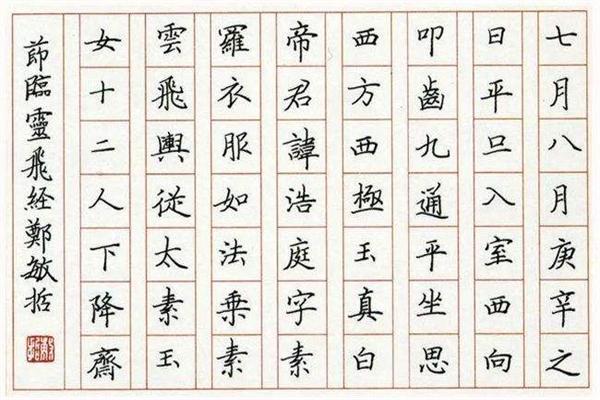 七月八月庚辛之
日平旦入室西向
叩齒九通平坐思
西方西極玉真白
帝君諱浩庭字素
羅衣服如法乗素
雲飛輿從太素玉
女十二人下降齋
莭臨靈飛経鄭敏哲